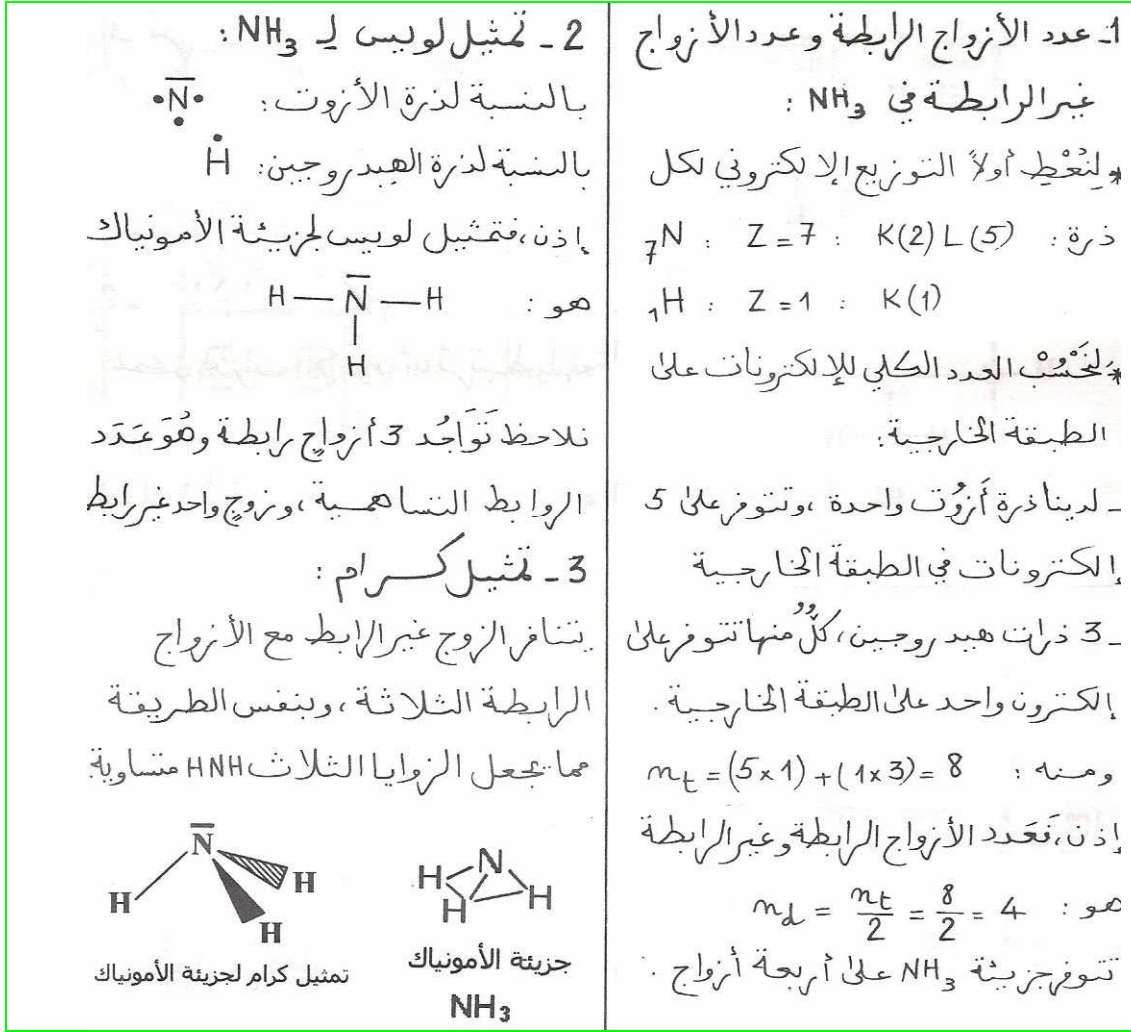 1ـ عدد الأزواج الرابطة وعدد الأزواج
غير الرابطة في NH₃ :
* لِنُعْطِ أولاً التوزيع الإلكتروني لكل
ذرة : ₇N : Z = 7 : K(2) L(5)
₁H : Z = 1 : K(1)
* لِنَحْسُبْ العدد الكلي للإلكترونات على
الطبقة الخارجية:
ـ لدينا ذرة أَزوُت واحدة ،وتتوفر على 5
إلكترونات في الطبقة الخارجية
ـ 3 ذرات هيدروجين، كلٌّ منها تتوفر على
إلكترون واحد على الطبقة الخارجية .
ومنه : n_t = (5×1) + (1×3) = 8
إذن،فَعَدد الأزواج الرابطة وغير الرابطة
هو : n_d = n_t/2 = 8/2 = 4
تتوفر جزيئة NH₃ على أربعة أزواج .
2 ـ تمثيل لويس لـ NH₃ :
بالنسبة لذرة الأزوت: •N̅•
•
بالنسبة لذرة الهيدروجين: Ḣ
إذن،فتمثيل لويس لجزيئة الأمونياك
هو : H — N̅ — H
H
نلاحظ تَوَاجُد 3 أزواجٍ رابطة وهُوَ عَدَد
الروابط التساهمية ،وزوجٍ واحد غير رابط
3 ـ تمثيل كرام :
يتنافر الزوج غير الرابط مع الأزواج
الرابطة الثلاثة ،وبنفس الطريقة
مما يجعل الزوايا الثلاث HNH متساوية
N
H H
H
جزيئة الأمونياك
NH₃
N̅
H H
H
تمثيل كرام لجزيئة الأمونياك